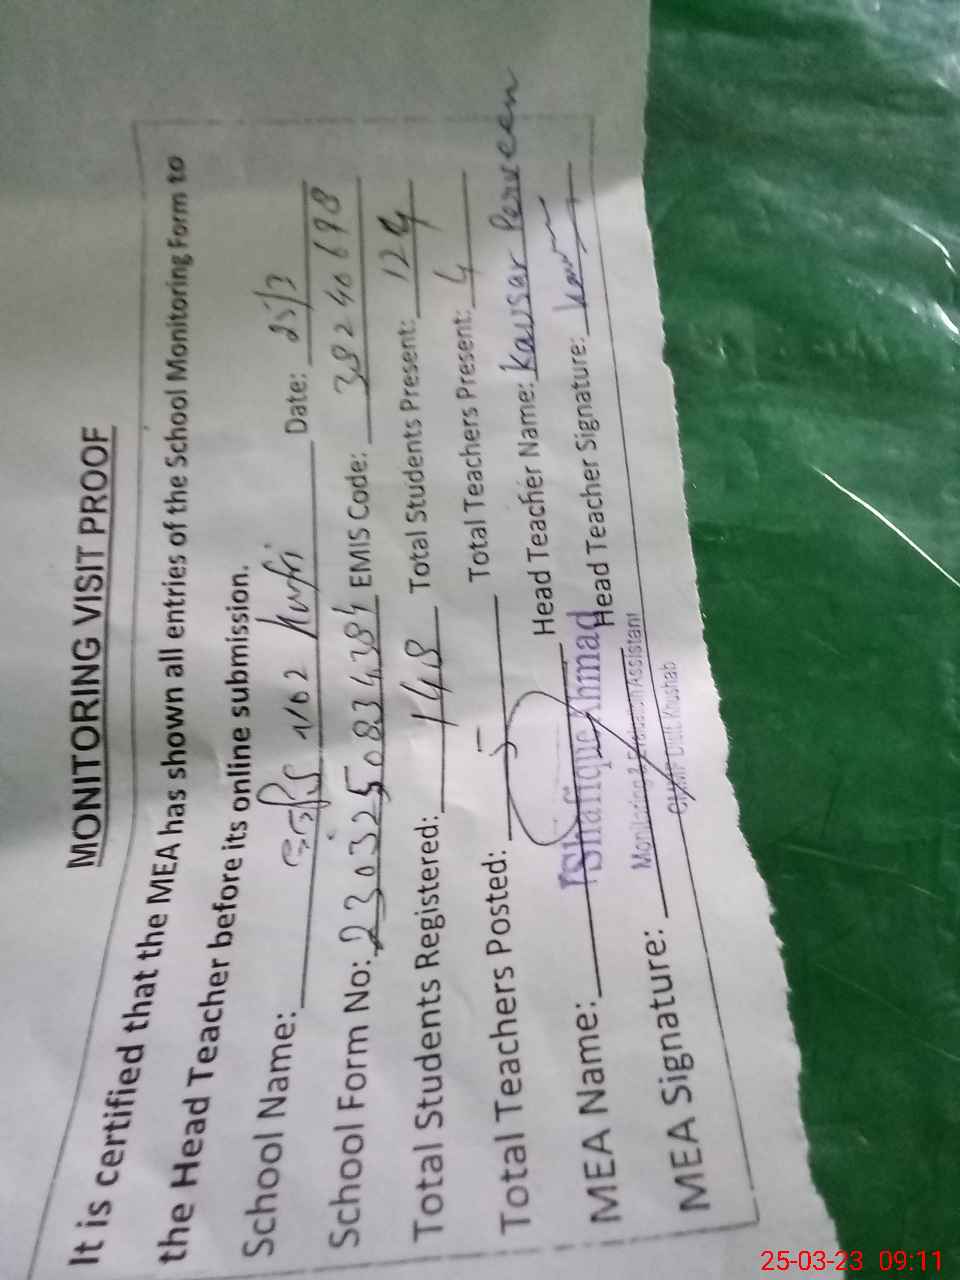 MONITORING VISIT PROOF
It is certified that the MEA has shown all entries of the School Monitoring Form to
the Head Teacher before its online submission.
School Name: No 2 Date: 25/3
School Form No: 2303250834384 EMIS Code: 38240698
Total Students Registered: 148 Total Students Present: 124
Total Teachers Posted: 5 Total Teachers Present: 4
Head Teacher Name: Kausar Perveen
MEA Name: Shafique Ahmad Head Teacher Signature:
Monitoring & Evaluation Assistant
MEA Signature: Khushab
25-03-23 09:11